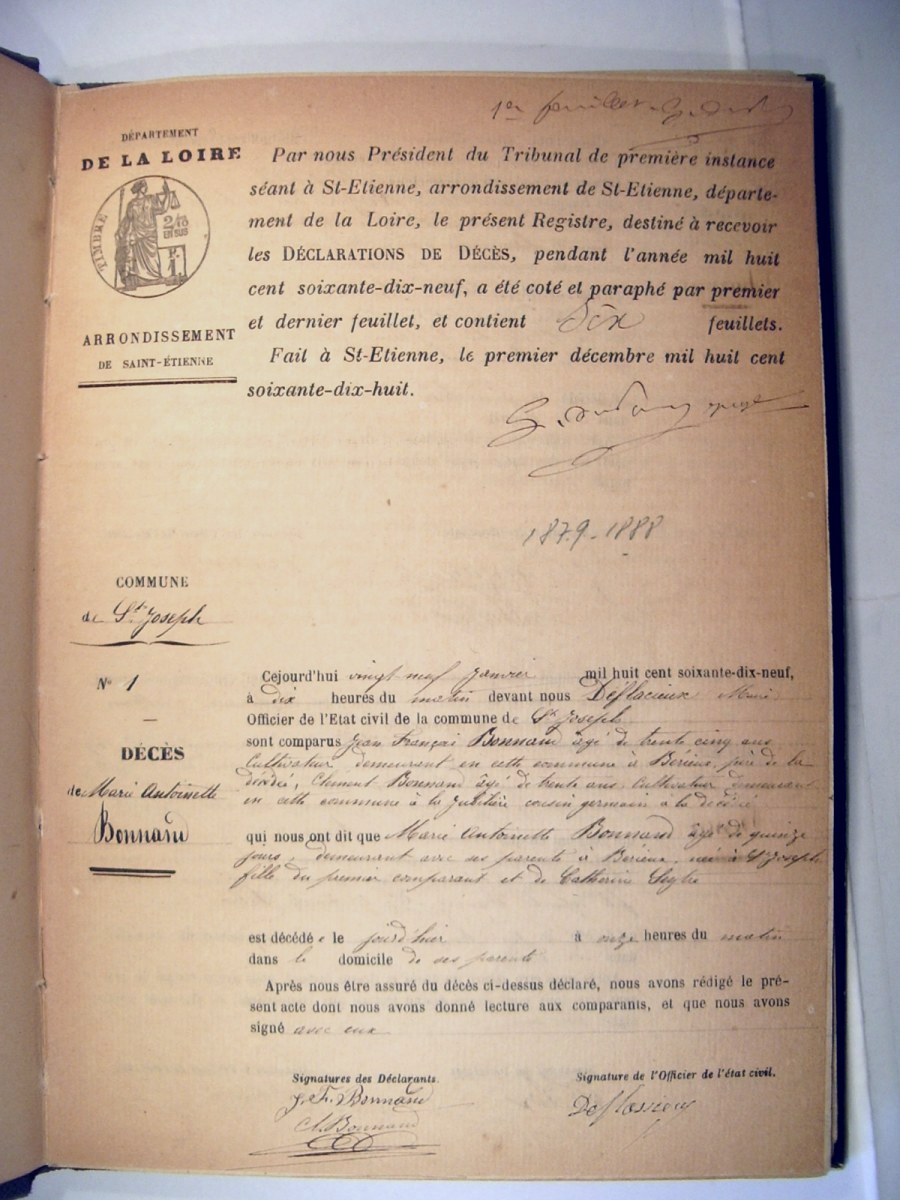 1er feuillet
DÉPARTEMENT
DE LA LOIRE
TIMBRE
2/10
EN SUS
ARRONDISSEMENT
DE SAINT-ÉTIENNE
Par nous Président du Tribunal de première instance
séant à St-Etienne, arrondissement de St-Etienne, départe-
ment de la Loire, le présent Registre, destiné à recevoir
les DÉCLARATIONS DE DÉCÈS, pendant l'année mil huit
cent soixante-dix-neuf, a été coté et paraphé par premier
et dernier feuillet, et contient Six feuillets.
Fait à St-Etienne, le premier décembre mil huit cent
soixante-dix-huit.
1879-1888
COMMUNE
de St Joseph
No 1
DÉCÈS
de Marie Antoinette
Bonnand
Cejourd'hui vingt neuf Janvier mil huit cent soixante-dix-neuf,
à dix heures du matin devant nous Déflacieux Maire
Officier de l'Etat civil de la commune de St Joseph
sont comparus Jean Français Bonnand âgé de trente cinq ans
Cultivateur demeurant en cette commune à Berieux, père de la
décédée, Clément Bonnand âgé de trente ans Cultivateur demeurant
en cette commune à la cousin germain à la décédée
qui nous ont dit que Marie Antoinette Bonnand âgée de quinze
jours, demeurant avec ses parents à Berieux, née à St Joseph
fille du premier comparant et de Catherine
est décédée le jourd'hier à onze heures du matin
dans le domicile de ses parents
Après nous être assuré du décès ci-dessus déclaré, nous avons rédigé le pré-
sent acte dont nous avons donné lecture aux comparants, et que nous avons
signé avec eux
Signatures des Déclarants.
Signature de l'Officier de l'état civil.
J. F. Bonnand
Cl. Bonnand
Deflassieux